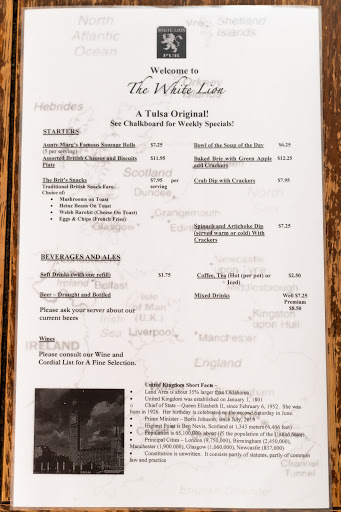 WHITE LION
PUB
Welcome to
The White Lion
A Tulsa Original!
See Chalkboard for Weekly Specials!
STARTERS
Aunty Marg's Famous Sausage Rolls $7.25
(5 per serving)
Assorted British Cheese and Biscuits $11.95
Plate
The Brit's Snacks $7.95 per
Traditional British Snack Fare. serving
Choice of:
• Mushrooms on Toast
• Heinz Beans On Toast
• Welsh Rarebit (Cheese On Toast)
• Eggs & Chips (French Fries)
Bowl of the Soup of the Day $6.25
Baked Brie with Green Apple $12.25
and Crackers
Crab Dip with Crackers $7.95
Spinach and Artichoke Dip $7.25
(served warm or cold) With
Crackers
BEVERAGES AND ALES
Soft Drinks (with one refill) $1.75
Coffee, Tea (Hot (per pot) or $2.50
Iced)
Beer – Draught and Bottled
Mixed Drinks Well $7.25
Premium
$8.50
Please ask your server about our
current beers
Wines
Please consult our Wine and
Cordial List for A Fine Selection.
United Kingdom Short Facts –
• Land Area is about 35% larger than Oklahoma
• United Kingdom was established on January 1, 1801
• Chief of State – Queen Elizabeth II, since February 6, 1952. She was
born in 1926. Her birthday is celebrated on the second Saturday in June.
• Prime Minister – Boris Johnson, since July, 2019
• Highest Point is Ben Nevis, Scotland at 1,343 meters (4,406 feet)
• Population is 65,100,000, about 1/5 the population of the United States
• Principal Cities – London (9,750,000), Birmingham (2,450,000),
Manchester (1,900,000), Glasgow (1,060,000), Newcastle (837,000)
• Constitution is unwritten. It consists partly of statutes, partly of common
law and practice
North
Atlantic
Ocean
Shetland
Islands
Orkney
Islands
Hebrides
Scotland
Dundee
North
Grangemouth
Glasgow
Newcastle
Ireland
Belfast
Isle
of Man
(U.K.)
Kingston
upon Hull
Liverpool
Manchester
IRELAND
England
Channel
Tunnel